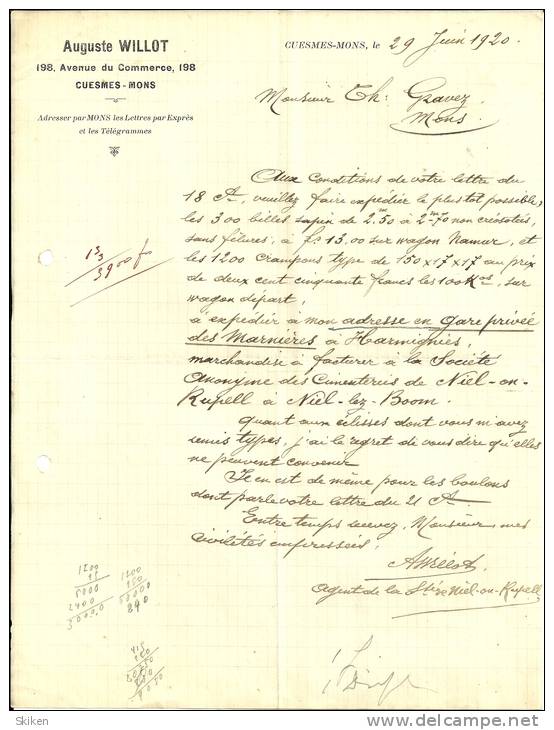 Auguste WILLOT
198, Avenue du Commerce, 198
CUESMES-MONS
Adresser par MONS les Lettres par Exprès
et les Télégrammes
CUESMES-MONS, le 29 Juin 1920.
Monsieur Th: Gravez
Mons.
Aux Conditions de votre lettre du
18 Ct, veuillez faire expédier le plus tot possible,
les 300 billes sapin de 2m50 à 2m70 non créosotées,
sans fêlures, à fcs 13,00 sur wagon Namur, et
les 1200 crampons type de 150 x 17 x 17 au prix
de deux cent cinquante francs les 100 Kos, sur
wagon départ,
à expédier à mon adresse en gare privée
des Marnières à Harmignies,
marchandise à facturer à la Société
Anonyme des Cimenteries de Niel-on-
Rupell à Niel-lez-Boom.
Quant aux éclisses dont vous m'avez
remis types, j'ai le regret de vous dire qu'elles
ne peuvent convenir.
Il en est de même pour les boulons
dont parle votre lettre du 21 Ct
Entre temps recevez, Monsieur, mes
civilités empressées,
AWillot
agent de la Sté Niel-on-Rupell
13
3900 fr
1200
1200
5000
2400
240
Skiken
delcampe.net